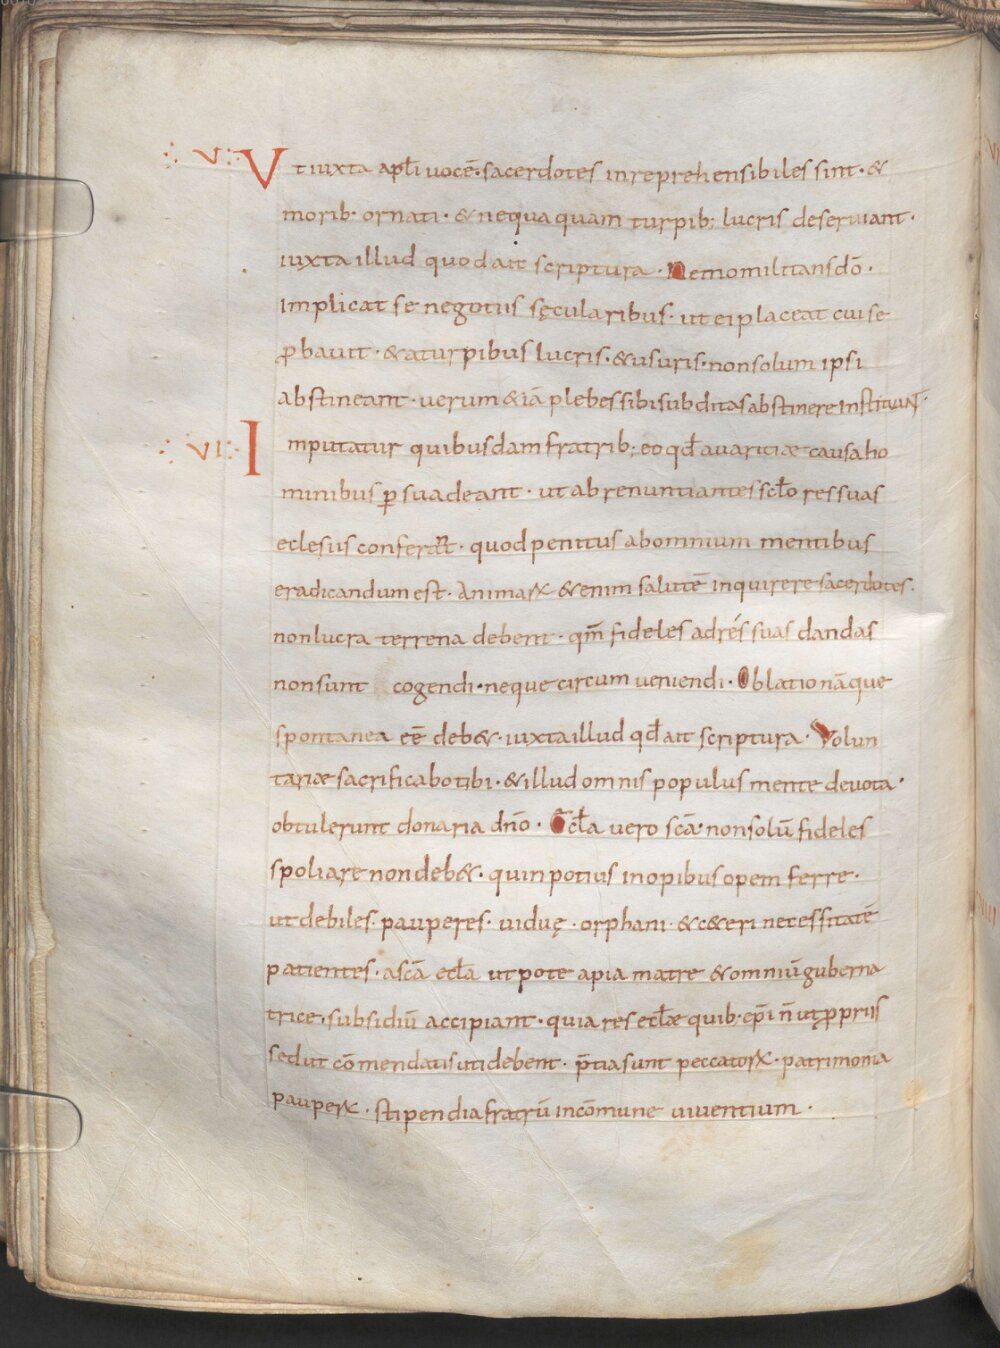 ∴ V ∴ Vt iuxta apłi uocē · sacerdotes inreprehensibiles sint · &
morib· ornati · & nequaquam turpib; lucris deseruiant ·
iuxta illud quod ait scriptura · Nemo militans dō ·
implicat se negotiis sęcularibus · ut ei placeat cui se
ꝓbauit · & a turpibus lucris · & usuris · non solum ipsi
abstineant · uerum & iā plebes sibi subditas abstinere instituant ·
∴ VI ∴ Imputatur quibusdam fratrib; eo qđ auaritiæ causa ho
minibus ꝑsuadeant · ut abrenuntiantes scło res suas
eclesiis conferant · quod penitus ab omnium mentibus
eradicandum est · Animaꝝ & enim salutē inquirere sacerdotes ·
non lucra terrena debent · qm̄ fideles ad res suas dandas
non sunt cogendi · neque circumueniendi · Oblatio nāque
spontanea eē deb& · iuxta illud qđ ait scriptura · Volun
tariæ sacrificabo tibi · & illud omnis populus mente deuota ·
obtulerunt donaria dn̄o · Ecła uero scā · non solū fideles
spoliare non deb& · quin potius inopibus opem ferre ·
ut debiles · pauperes · uiduę · orphani · & c&eri necessitatē
patientes · a scā ecła ut pote a pia matre & omniū guberna
trice · subsidiū accipiant · quia res ecłæ quib· ep̄i n̄ ut ꝓpriis
sed ut cōmendatis uti debent · p̄tia sunt peccatoꝝ · patrimonia
paupeꝝ · stipendia fratrū in cōmune uiuentium ·